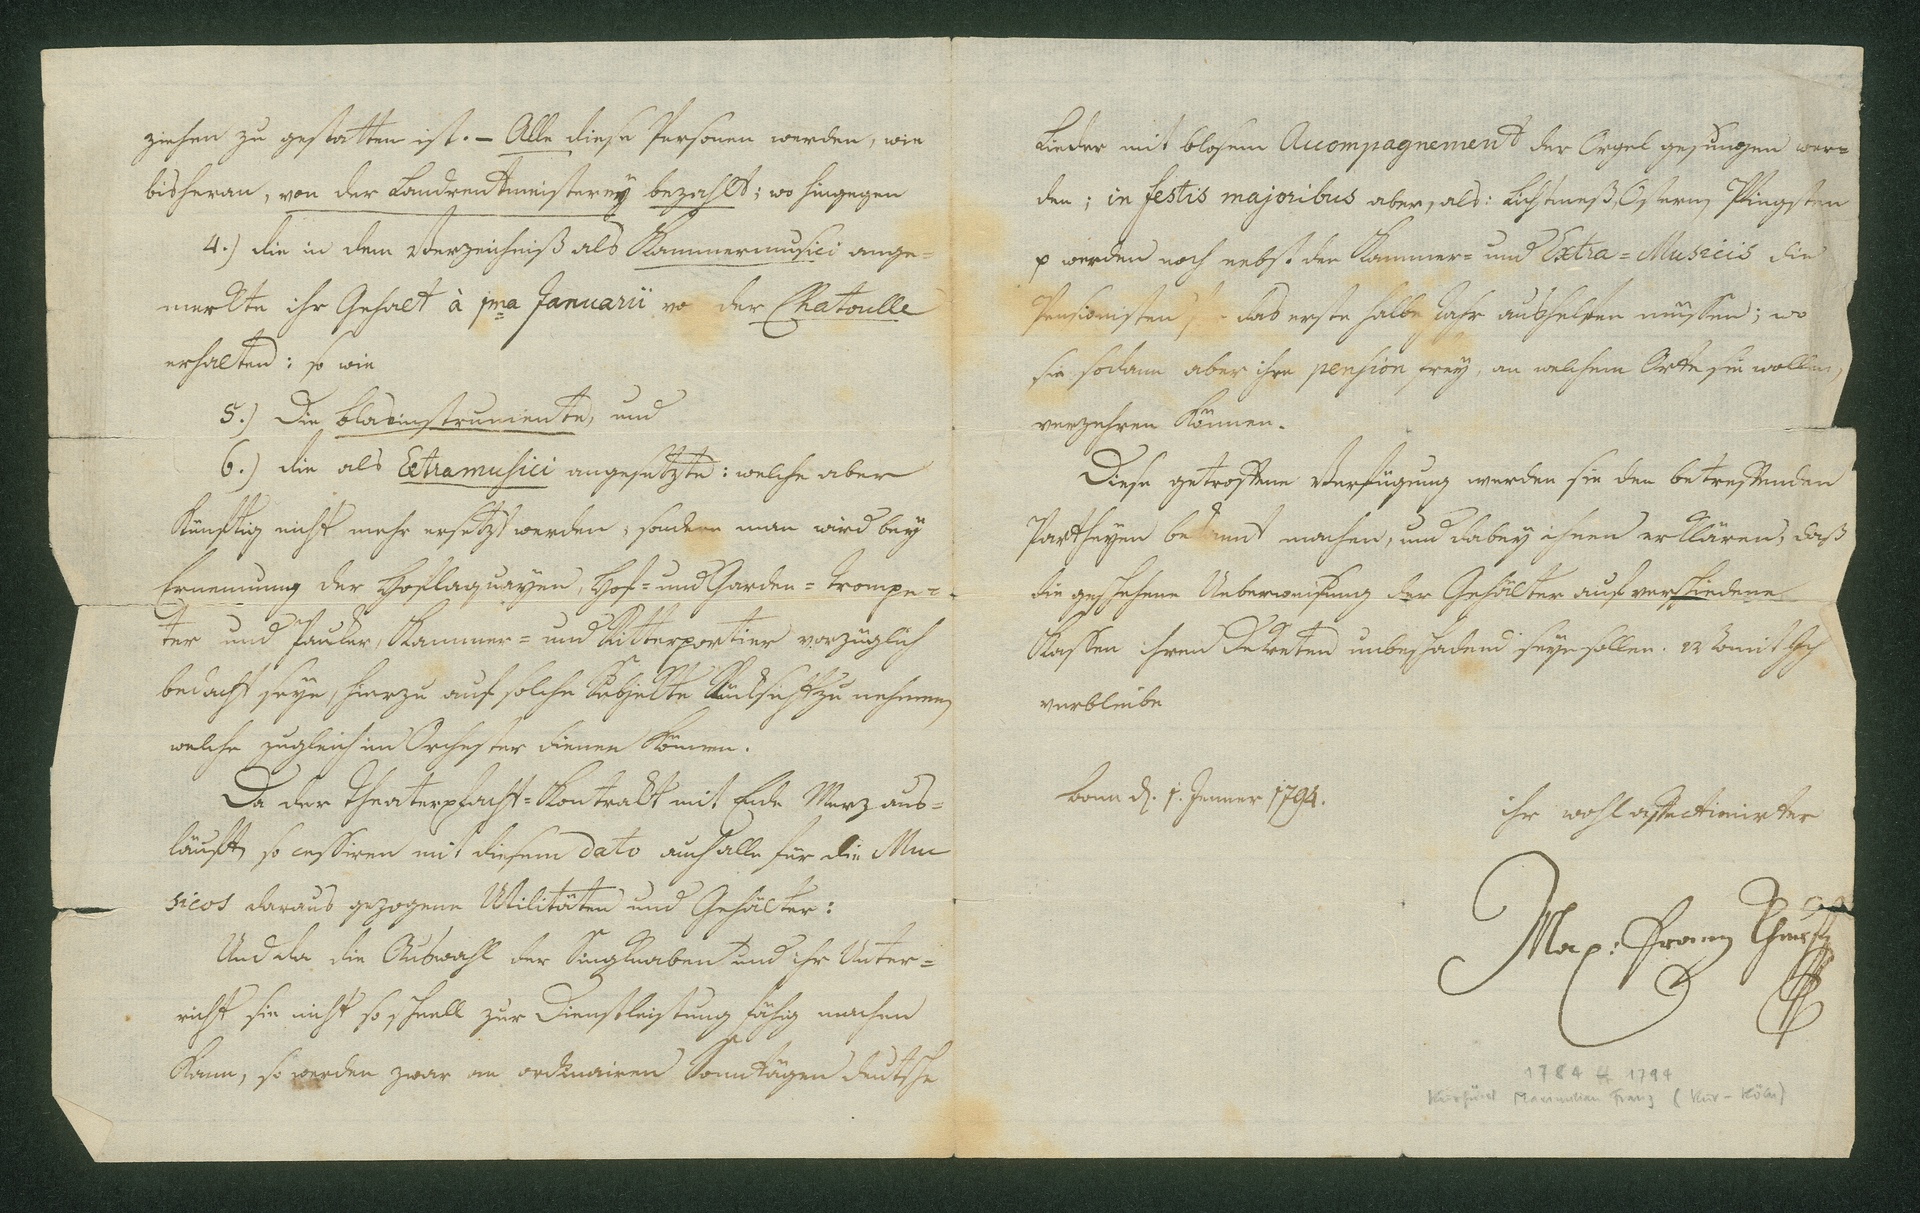 ziehen zu gestatten ist. – Alle diese Personen werden, wie
bisheran, von der Landrentmeisterey bezahlt; wo hingegen
4.) die in dem Verzeichniß als Kammermusici ange=
merkte ihr Gehalt à pma Januarii vo der Chatoulle
erhalten: so wie
5.) Die blasinstrumente, und
6.) die als Extramusici angesetzte: welche aber
künftig nicht mehr ersetzt werden, sondern man wird bey
Ernennung der Hoflaquayen, Hof= und Garden=trompe=
ter und Pauker, Kammer= und Ritterportier vorzüglich
bedacht seye, hierzu auf solche Subjekte Rücksicht zu nehmen,
welche zugleich im Orchester dienen können.
Da der Theaterpfacht=Kontrakt mit Ende Merz aus=
läuft, so cessiren mit diesem dato auch alle für die Mu
sicos daraus gezogene Utilitäten und Gehälter:
Und da die Auswahl der Singknaben und ihr Unter=
richt sie nicht so schnell zur Dienstleistung fähig machen
kann, so werden zwar an ordinairen Sonntägen deutsche
Lieder mit blosem Accompagnement der Orgel gesungen wer=
den; in festis majoribus aber, als: Lichtmeß, Ostern, Pfingsten
p werden noch nebst den Kammer= und Extra=Musicis die
Pensionisten das erste halbe Jahr aushelfen müssen; wo
sie sodann aber ihre pension frey, an welchem Orte sie wollen,
verzehren können.
Diese getroffene Verfügung werden sie den betreffenden
Partheyen bekannt machen, und dabey ihnen erklären, daß
die geschehene Ueberweisung der Gehälter auf verschiedene
Kassen ihren Dekreten unbeschadend seyn sollen. womit Ich
verbleibe
Bonn d. 1. Jenner 1794.
ihr wohl affectionirter
Max: Franz Churfst
1784 – 1794
Kurfürst Maximilian Franz (Kur-Köln)